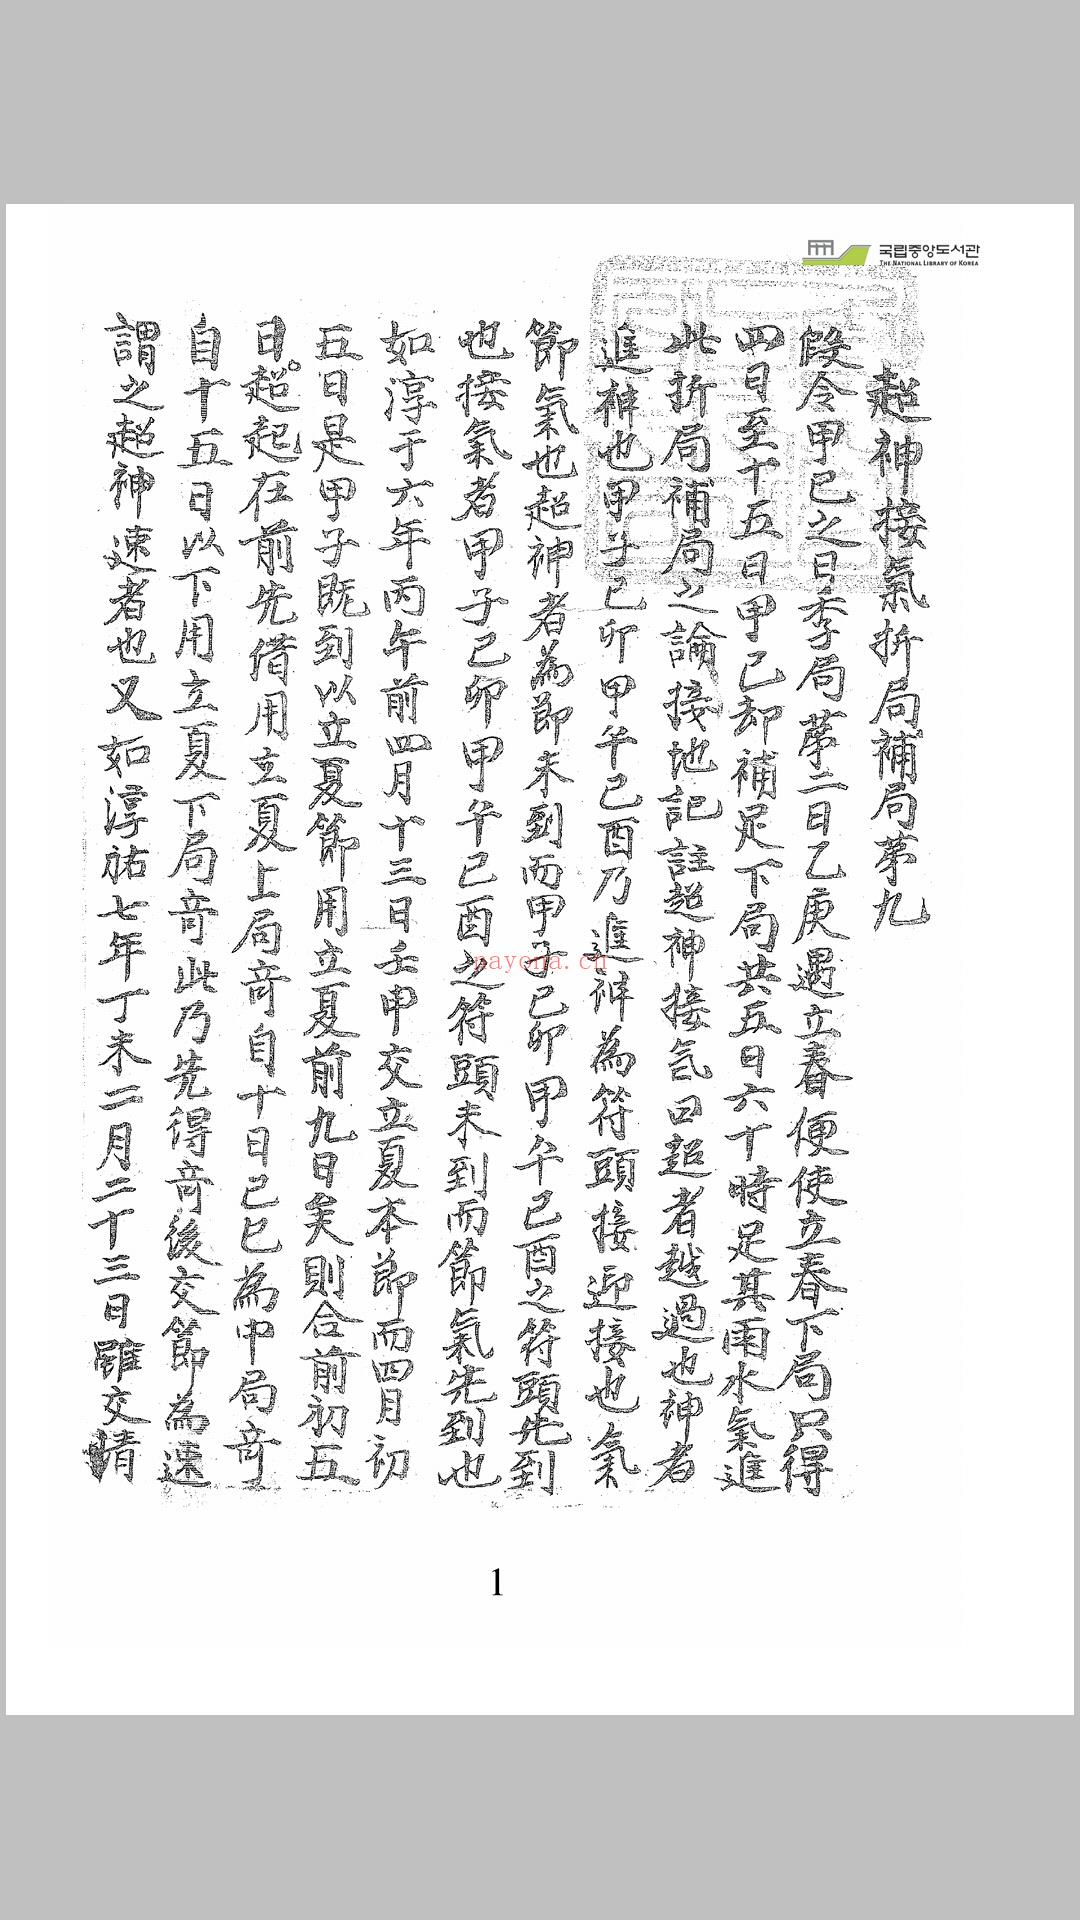 국립중앙도서관
THE NATIONAL LIBRARY OF KOREA
超神接氣折局補局苐九
假令甲己之日季局苐二日乙庚遇立春便使立春下局只得
四日至十五日甲己却補足下局共五日六十時足其雨水氣進
此折局補局之論接地記註超神接氣曰超者越過也神者
進神也甲子己卯甲午己酉乃進神為符頭接迎接也氣
節氣也超神者為節未到而甲子己卯甲午己酉之符頭先到
也接氣者甲子己卯甲午己酉之符頭未到而節氣先到也
如淳于六年丙午前四月十三日壬甲交立夏本節而四月初
五日是甲子既到以立夏節用立夏前九日矣則合前初五
日超起在前先借用立夏上局竒自十日己巳為中局竒
自十五日以下用立夏下局竒此乃先得竒後交節為速
謂之超神速者也又如淳祐七年丁未二月二十三日雖交晴
nayona.cn
1